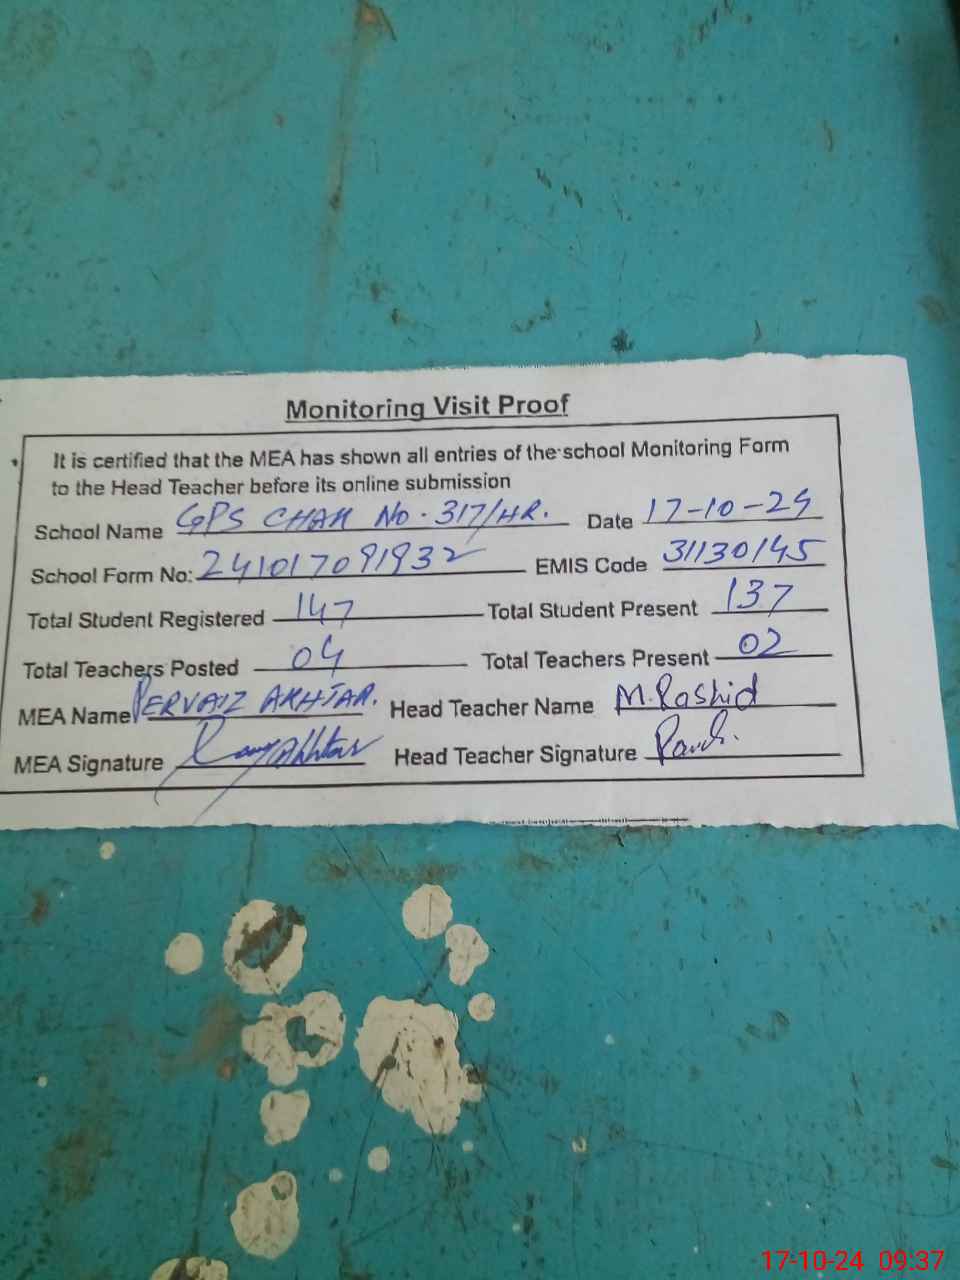 Monitoring Visit Proof
It is certified that the MEA has shown all entries of the school Monitoring Form
to the Head Teacher before its online submission
School Name GPS CHAK No. 317/HR. Date 17-10-24
School Form No: 241017091932 EMIS Code 31130145
Total Student Registered 147 Total Student Present 137
Total Teachers Posted 04 Total Teachers Present 02
MEA Name PERVAIZ AKHTAR. Head Teacher Name M.Rashid
MEA Signature Head Teacher Signature
17-10-24 09:37